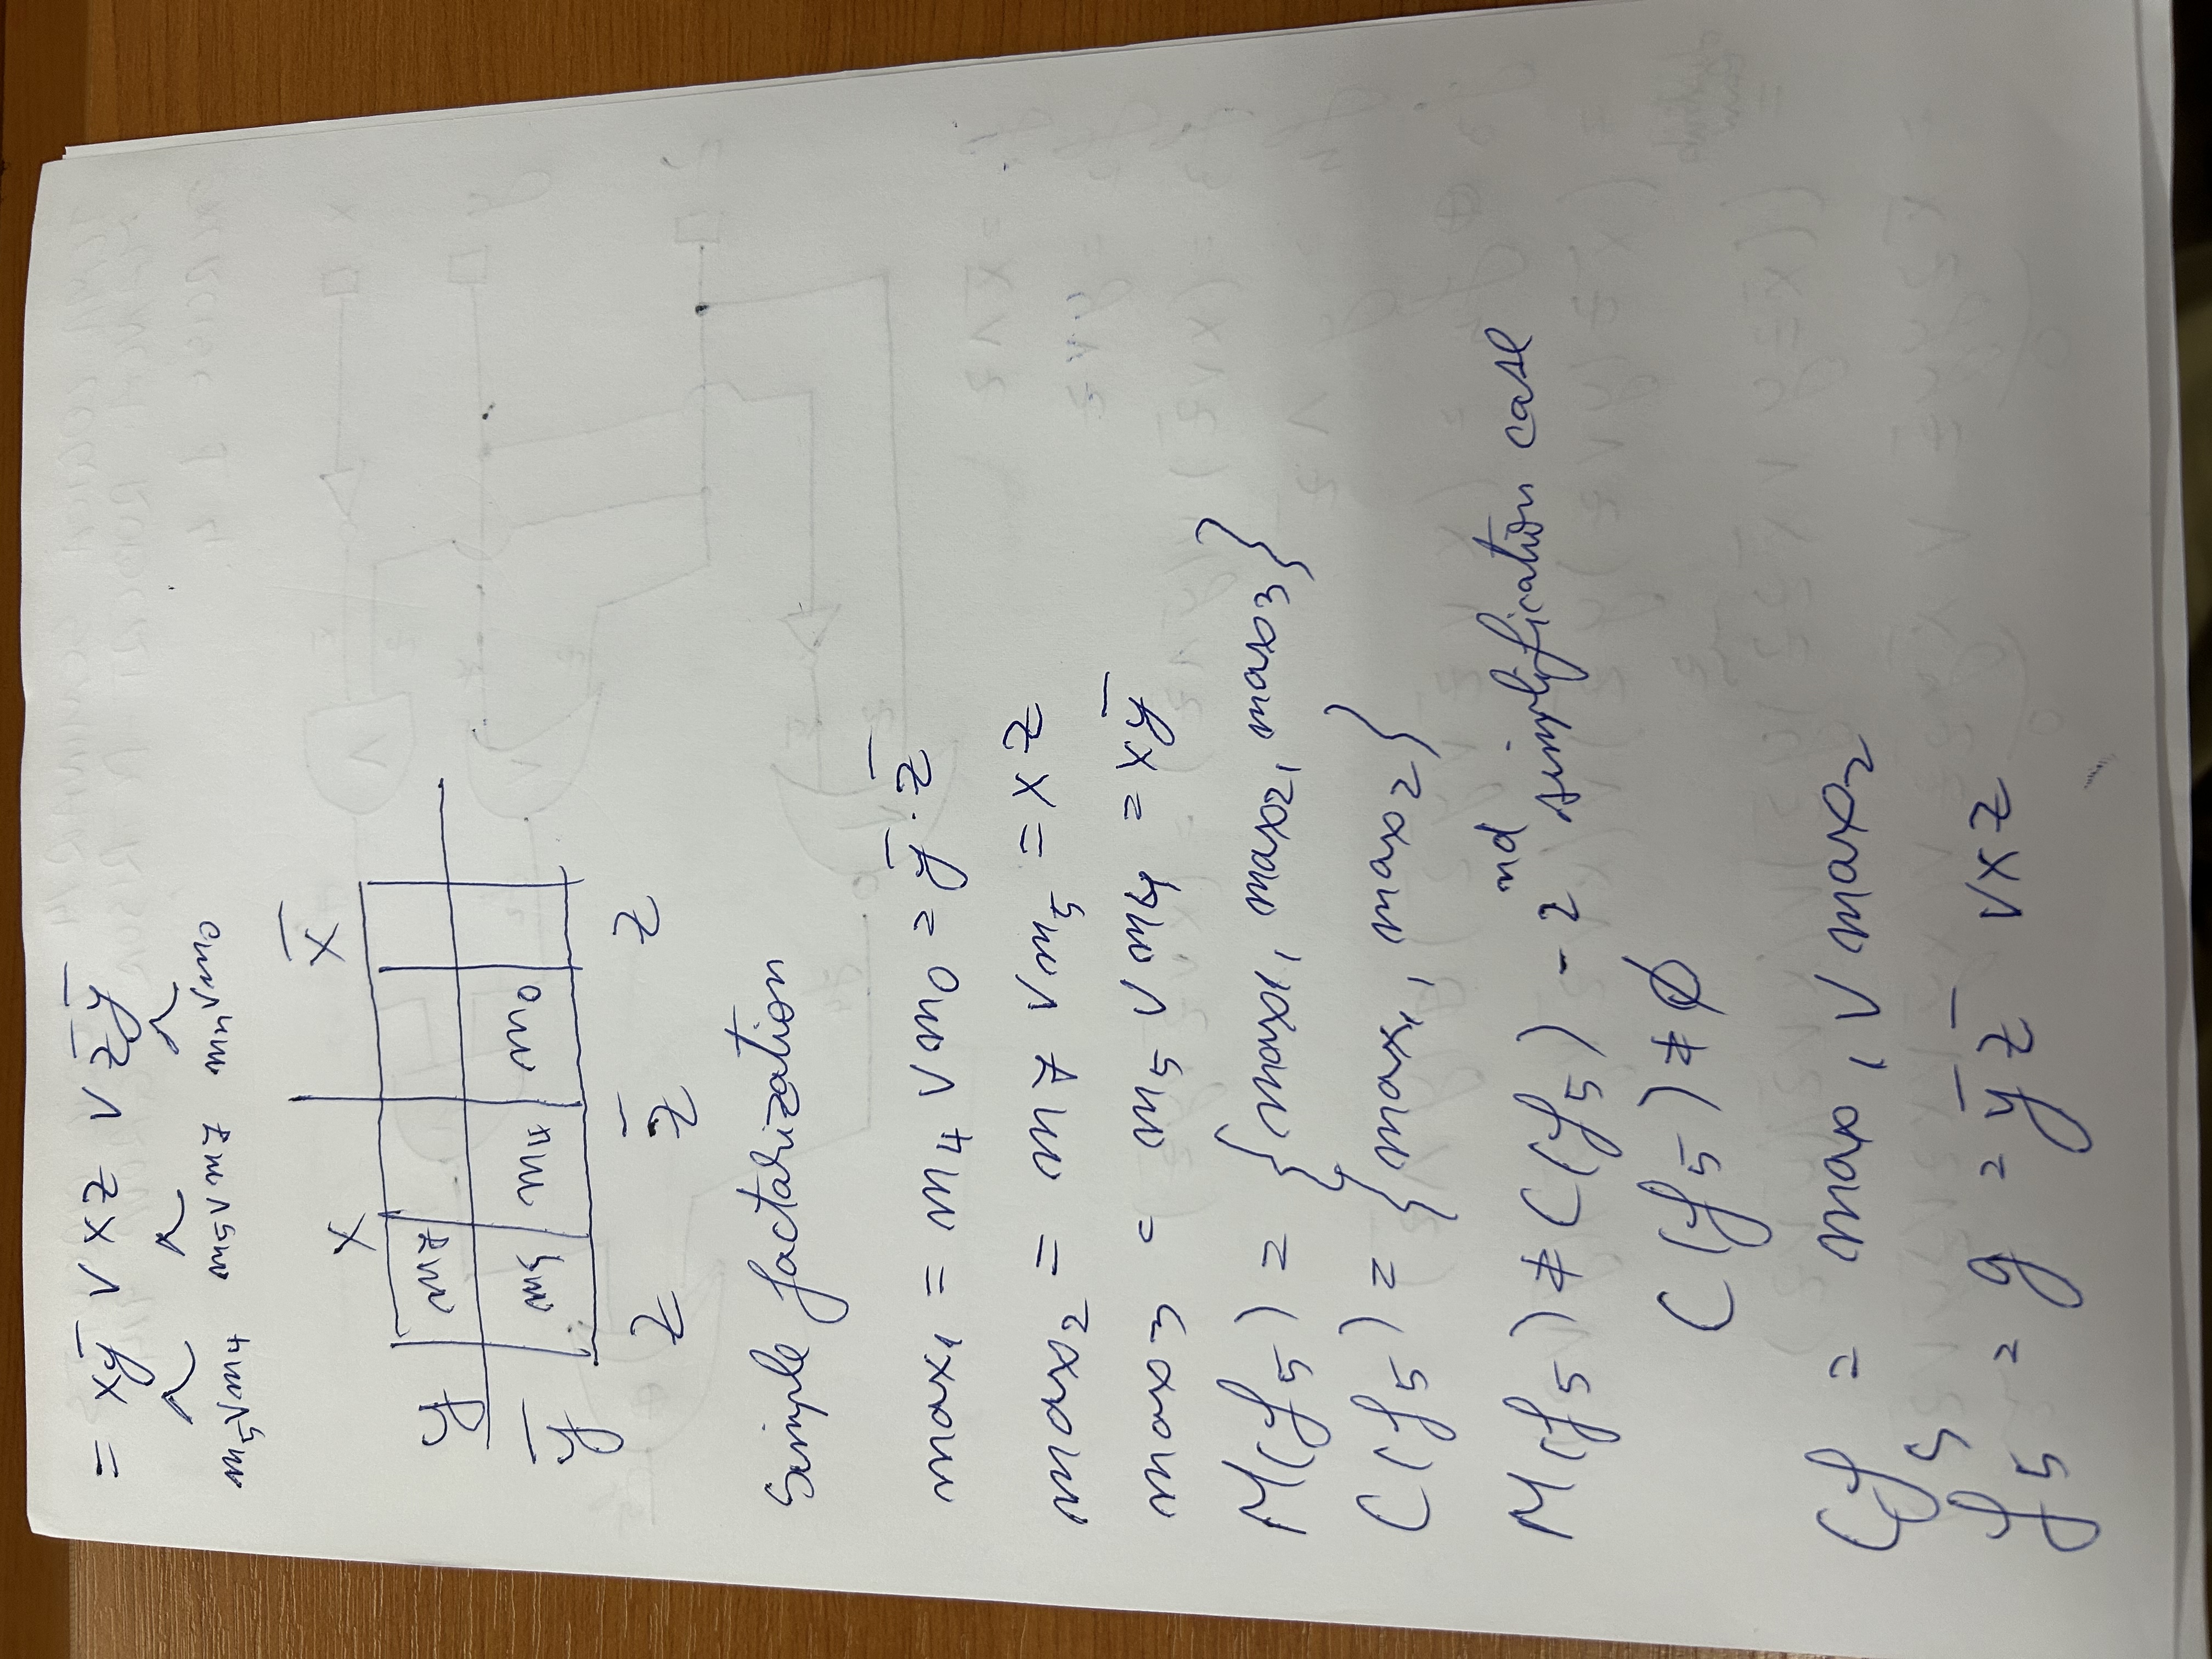 = xy̅ ∨ xz ∨ z̅y̅
m₅∨m₄ m₅∨m₇ m₄∨m₀
x x̅
y m₇
y̅ m₅ m₄ m₀
z z̅ z
Simple factarization
max₁ = m₄ ∨ m₀ = y̅ · z̅
max₂ = m₇ ∨ m₅ = xz
max₃ = m₅ ∨ m₄ = xy̅
M(f₅) = {max₁, max₂, max₃}
C(f₅) = {max₁, max₂}
M(f₅) ≠ C(f₅) - 2nd simplification case
C(f₅) ≠ ∅
Cf₅ = max₁ ∨ max₂
f₅ = g = y̅z̅ ∨ xz